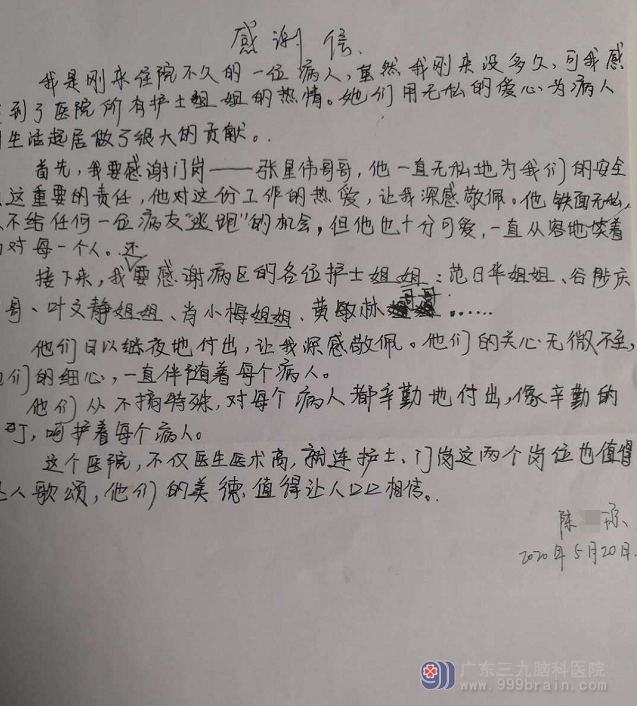 感谢信.
我是刚来住院不久的一位病人,虽然我刚来没多久,可我感
到了医院所有护士姐姐的热情。她们用无私的爱心为病人
生活起居做了很大的贡献。.
首先,我要感谢门岗——张星伟哥哥,他一直无私地为我们的安全
这重要的责任,他对这份工作的热爱,让我深感敬佩。他铁面无私,
不给任何一位病友“逃跑”的机会,但他也十分可爱,一直从容地笑着
对每一个人。还
接下来,我要感谢病区的各位护士姐姐:范日华姐姐、谷彬庆
哥、叶文静姐姐、肖小梅姐姐、黄敏林哥哥......
他们日以继夜地付出,让我深感敬佩。他们的关心无微不至,
们的细心,一直伴随着每个病人。
他们从不搞特殊,对每个病人都辛勤地付出,像辛勤的
丁,呵护着每个病人。
这个医院,不仅医生医术高,就连护士、门岗这两个岗位也值得
人歌颂,他们的美德值得让人口口相传。.
陈 琼
2020年5月20日.
广东三九脑科医院
www.999brain.com